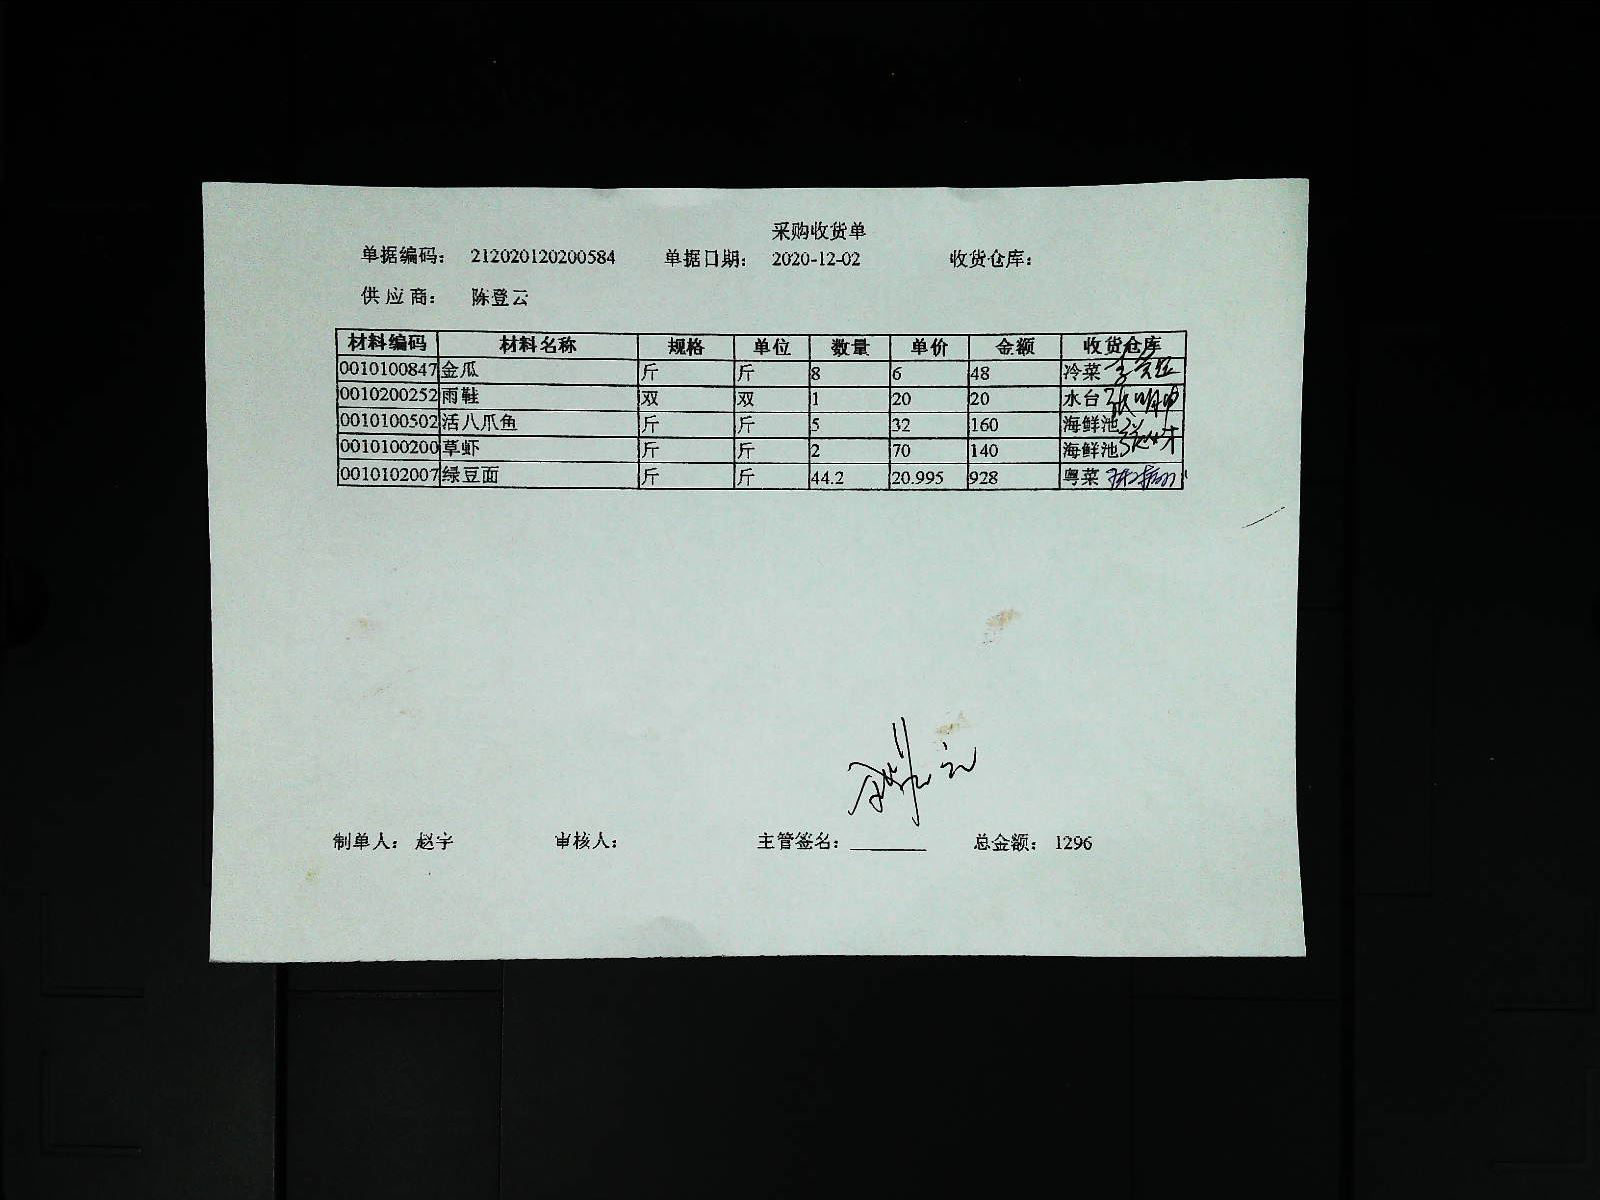 采购收货单
单据编码： 212020120200584 单据日期： 2020-12-02 收货仓库：
供 应 商： 陈登云
材料编码 材料名称 规格 单位 数量 单价 金额 收货仓库
0010100847 金瓜 斤 斤 8 6 48 冷菜
0010200252 雨鞋 双 双 1 20 20 水台
0010100502 活八爪鱼 斤 斤 5 32 160 海鲜池
0010100200 草虾 斤 斤 2 70 140 海鲜池
0010102007 绿豆面 斤 斤 44.2 20.995 928 粤菜
制单人： 赵宇 审核人： 主管签名： 总金额： 1296